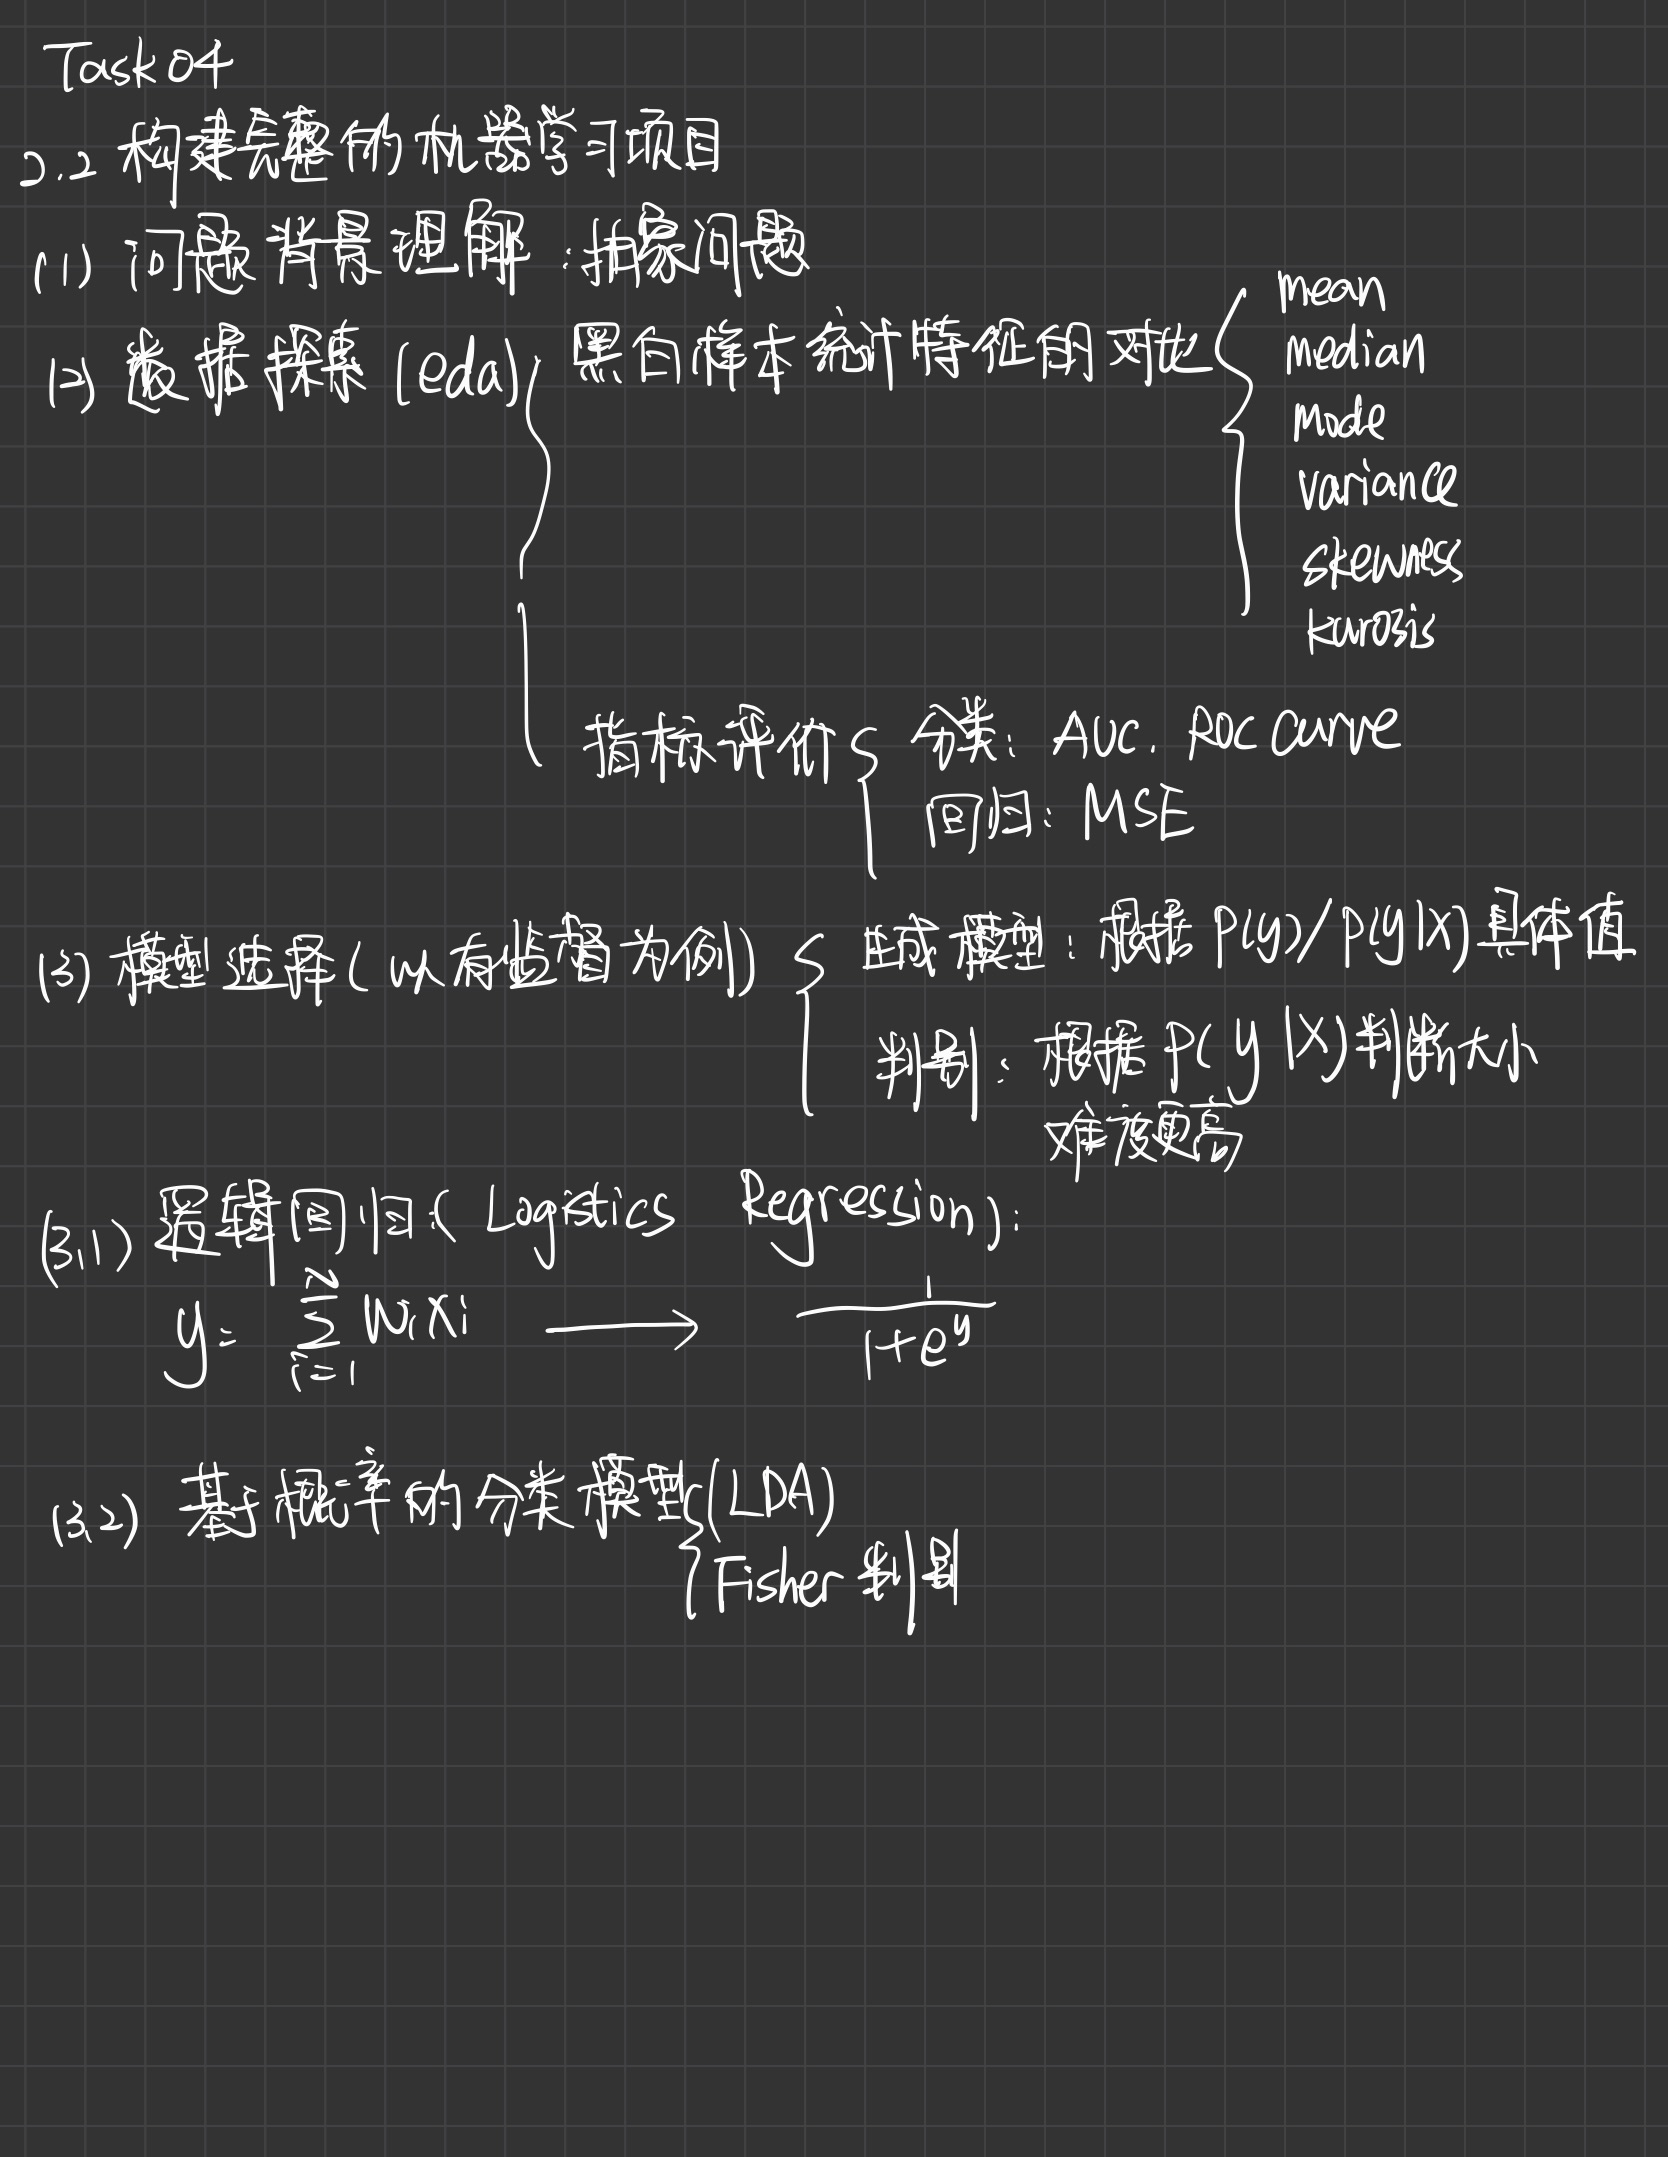 Task04
2.2 构建完整的机器学习项目
(1) 问题背景理解：抽象问题
(2) 数据探索 (eda) { 黑白样本统计特征的对比 { mean
median
mode
variance
skewness
kurosis
指标评价 { 分类：AUC. ROC Curve
回归：MSE
(3) 模型选择（以有监督为例） { 生成模型：根据 P(y)/P(y|X) 具体值
判别：根据 P(y|X) 判断大小
难度更高
(3.1) 逻辑回归 (Logistics Regression)：
y = \sum_{i=1}^{N} w_i x_i → \frac{1}{1+e^y}
(3.2) 基于概率的分类模型 { (LDA)
Fisher 判别